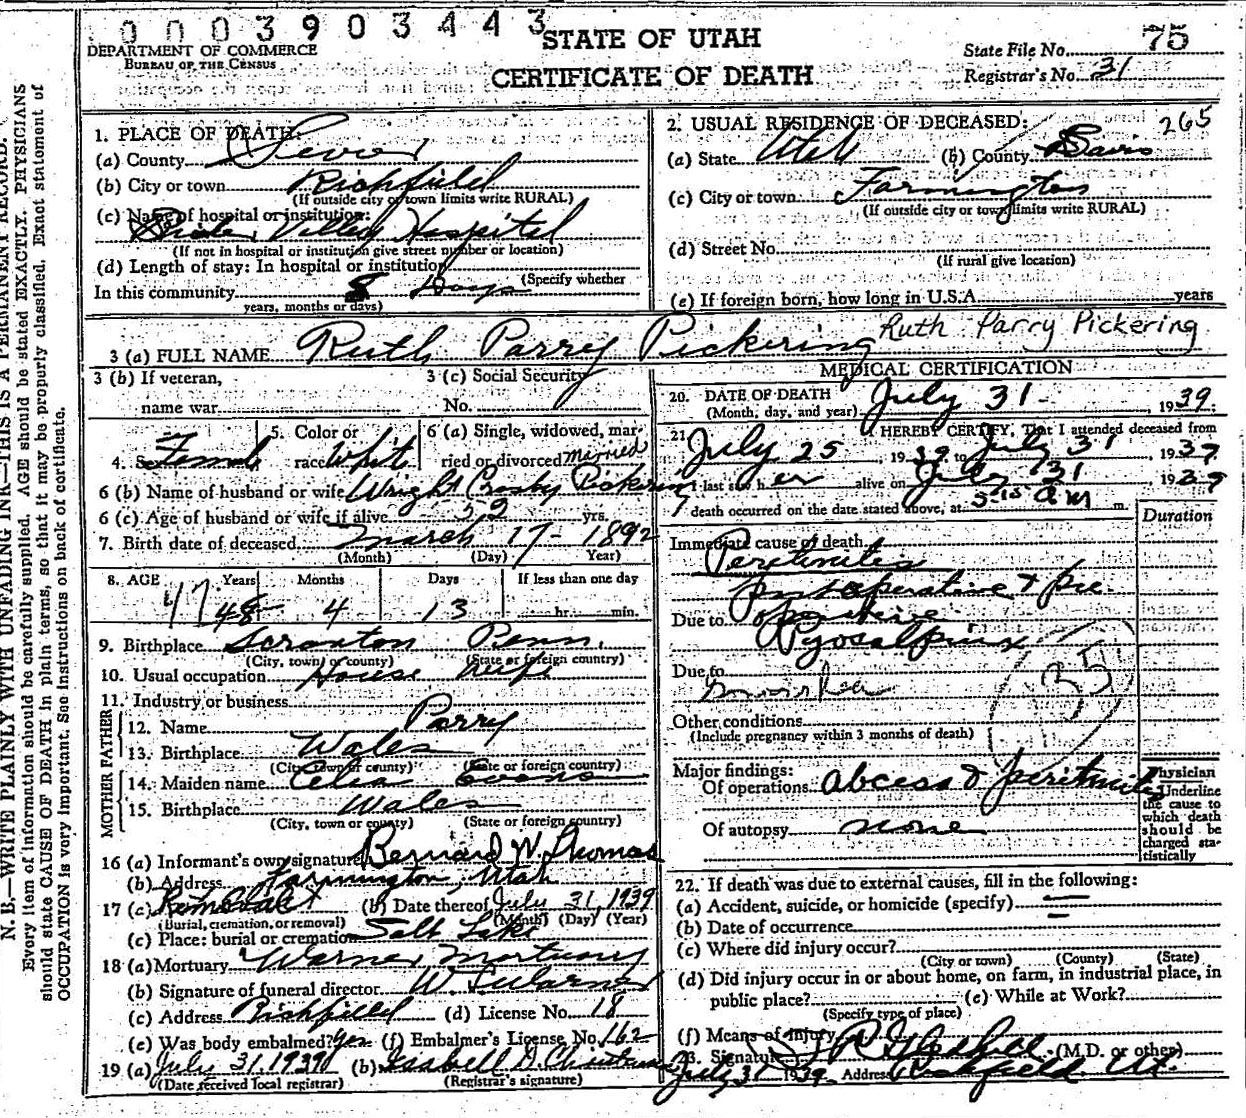 0003903443
DEPARTMENT OF COMMERCE
BUREAU OF THE CENSUS
STATE OF UTAH
CERTIFICATE OF DEATH
State File No. 75
Registrar's No. 31
N. B.—WRITE PLAINLY WITH UNFADING INK—THIS IS A PERMANENT RECORD.
Every item of information should be carefully supplied. AGE should be stated EXACTLY. PHYSICIANS
should state CAUSE OF DEATH in plain terms, so that it may be properly classified. Exact statement of
OCCUPATION is very important. See instructions on back of certificate.
1. PLACE OF DEATH:
(a) County Sevier
(b) City or town Richfield
(If outside city or town limits write RURAL)
(c) Name of hospital or institution:
Valley Hospital
(If not in hospital or institution give street number or location)
(d) Length of stay: In hospital or institution
(Specify whether
In this community 8 Days
years, months or days)
2. USUAL RESIDENCE OF DECEASED: 265
(a) State Utah (b) County Davis
(c) City or town Farmington
(If outside city or town limits write RURAL)
(d) Street No.
(If rural give location)
(e) If foreign born, how long in U.S.A. years
3 (a) FULL NAME Ruth Parry Pickering Ruth Parry Pickering
3 (b) If veteran,
name war
3 (c) Social Security
No.
4. Sex Female
5. Color or
race White
6 (a) Single, widowed, mar-
ried or divorced married
6 (b) Name of husband or wife Wright Crosby Pickering
6 (c) Age of husband or wife if alive 52 yrs.
7. Birth date of deceased March 17 - 1892
(Month) (Day) Year)
8. AGE Years Months Days If less than one day
47 48 4 13 hr. min.
9. Birthplace Scranton Penn.
(City, town) or county) (State or foreign country)
10. Usual occupation House wife
11. Industry or business
FATHER
12. Name Parry
13. Birthplace Wales
(City, town or county) (State or foreign country)
MOTHER
14. Maiden name Celia Evans
15. Birthplace Wales
(City, town or county) (State or foreign country)
16 (a) Informant's own signature Bernard W Thomas
(b) Address Farmington, Utah
17 (a) Removal (b) Date thereof July 31, 1939
(Burial, cremation, or removal) (Month) (Day) (Year)
(c) Place: burial or cremation Salt Lake
18 (a) Mortuary Warner Mortuary
(b) Signature of funeral director W.
(c) Address Richfield (d) License No. 18
(e) Was body embalmed? yes (f) Embalmer's License No. 162
19 (a) July 31, 1939 (b) Isabell D. Christensen
(Date received local registrar) (Registrar's signature)
MEDICAL CERTIFICATION
20. DATE OF DEATH
(Month, day, and year) July 31 - 1939
21. I HEREBY CERTIFY, That I attended deceased from
July 25, 1939 to July 31, 1939
I last saw her alive on July 31 1939
death occurred on the date stated above, at 5:15 AM m.
Duration
Immediate cause of death
Peritonitis
postoperative & pre
Due to operative
Pyosalpinx
Due to
35
Other conditions
(Include pregnancy within 3 months of death)
Major findings:
Of operations Abcess & peritonitis
Of autopsy none
Physician
Underline
the cause to
which death
should be
charged sta-
tistically
22. If death was due to external causes, fill in the following:
(a) Accident, suicide, or homicide (specify)
(b) Date of occurrence
(c) Where did injury occur?
(City or town) (County) (State)
(d) Did injury occur in or about home, on farm, in industrial place, in
public place? (e) While at Work?
(Specify type of place)
(f) Means of Injury
23. Signature (M.D. or other)
July 31 1939 Address Richfield Ut.